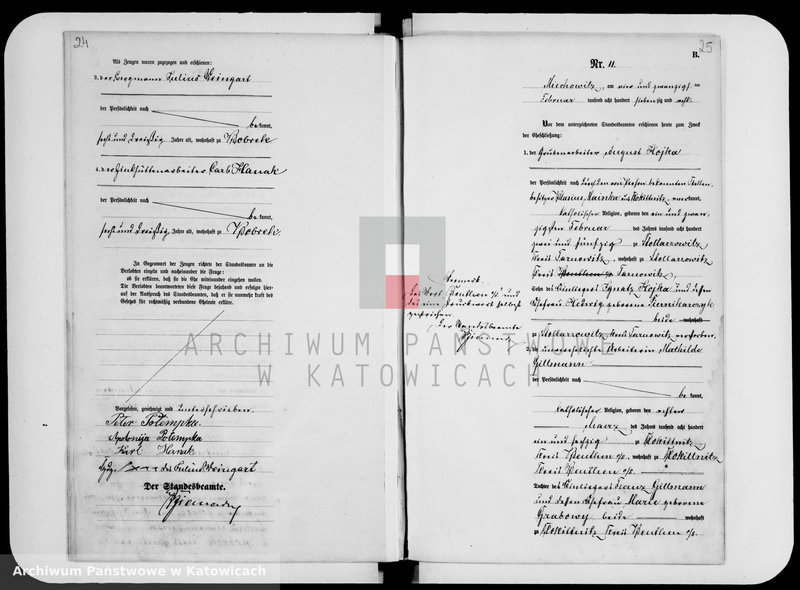 24
Als Zeugen waren zugezogen und erschienen:
3. der Bergmann Julius Weingart
der Persönlichkeit nach
be kannt,
sechs und dreißig Jahre alt, wohnhaft zu Bobrek
4. der Zinkhüttenarbeiter Carl Hanak
der Persönlichkeit nach
be kannt,
sechs und dreißig Jahre alt, wohnhaft zu Bobrek
In Gegenwart der Zeugen richtete der Standesbeamte an die
Verlobten einzeln und nacheinander die Frage:
ob sie erklären, daß sie die Ehe miteinander eingehen wollen.
Die Verlobten beantworteten diese Frage bejahend und erfolgte hier-
auf der Ausspruch des Standesbeamten, daß er sie nunmehr kraft des
Gesetzes für rechtmäßig verbundene Eheleute erkläre.
Vorgelesen, genehmigt und unterschrieben.
Peter Potempka
Apolonija Potempka
Karl Hanak
xxx des Julius Weingart
Der Standesbeamte.
25
B.
Nr. 11.
Miechowitz, am vier und zwanzigsten
Februar tausend acht hundert siebenzig und acht.
Vor dem unterzeichneten Standesbeamten erschienen heute zum Zweck
der Eheschließung:
1. der Grubenarbeiter August Hojka
der Persönlichkeit nach durch den von Person bekannten Stellen-
besitzer Mainka aus Rokittnitz, anerkannt,
katholischer Religion, geboren den ein und zwan-
zigsten Februar des Jahres tausend acht hundert
zwei und fünfzig zu Stollarzowitz
Kreis Tarnowitz, wohnhaft zu Stollarzowitz
Kreis Beuthen o/s. Tarnowitz,
Sohn des Einliegers Ignatz Hojka und dessen
Ehefrau Hedwig geborene
beide wohnhaft
zu Stollarzowitz Kreis Tarnowitz verstorben.
2. die unverehelichte Arbeiterin Mathilde
Gillmann
der Persönlichkeit nach
be kannt,
katholischer Religion, geboren den achten
Maerz des Jahres tausend acht hundert
ein und sechzig zu Rokittnitz
Kreis Beuthen o/s., wohnhaft zu Rokittnitz
Kreis Beuthen o/s.
Tochter des Einliegers Franz Gillmann
und dessen Ehefrau Marie geborene
Grabowy, beide wohnhaft
zu Rokittnitz Kreis Beuthen o/s.
Vermerk.
Das Wort "Beuthen o/s" und
das eine Druckwort
gestrichen
Der Standesbeamte
ARCHIWUM PAŃSTWOWE
W KATOWICACH
Archiwum Państwowe w Katowicach